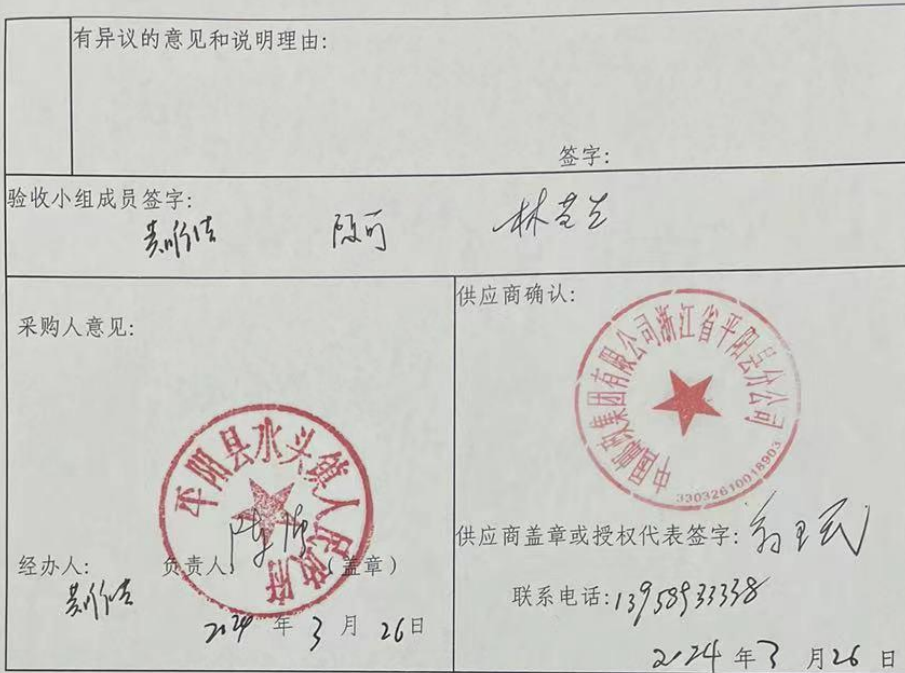 有异议的意见和说明理由:
签字:
验收小组成员签字:
采购人意见:
平阳县水头镇人民政府
经办人: 负责人: (盖章)
2024 年 3 月 26日
供应商确认:
中国邮政集团有限公司浙江省平阳县分公司
33032610018903
供应商盖章或授权代表签字:
联系电话:13958933338
2024 年 3 月 26 日